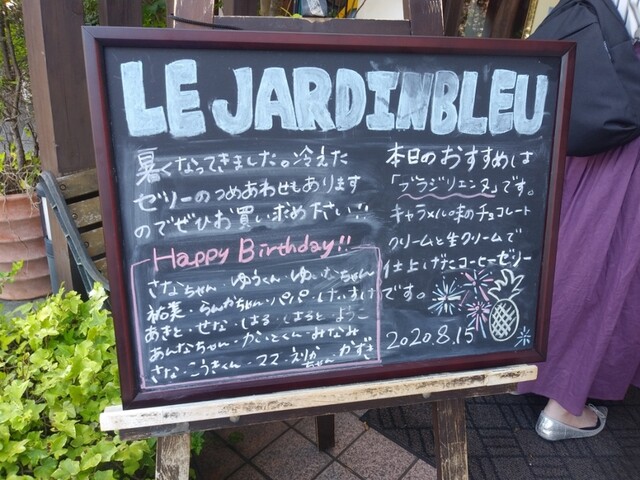 LE JARDIN BLEU
暑くなってきました。冷えた
ゼリーのつめあわせもあります
のでぜひお買い求め下さい!!
本日のおすすめは
「ブラジリエンヌ」です。
キャラメル味のチョコレート
クリームと生クリームで
仕上げたコーヒーゼリー
です。
2020.8.15
Happy Birthday!!
さなちゃん・ゆうくん・ゆいなちゃん
祐実・らんかちゃん・パパ・けいすけ
あきと・せな・はる・はると・ようこ
あんなちゃん・かいとくん・みなみ
さな・こうきくん・ママ・えりかちゃん・かずき